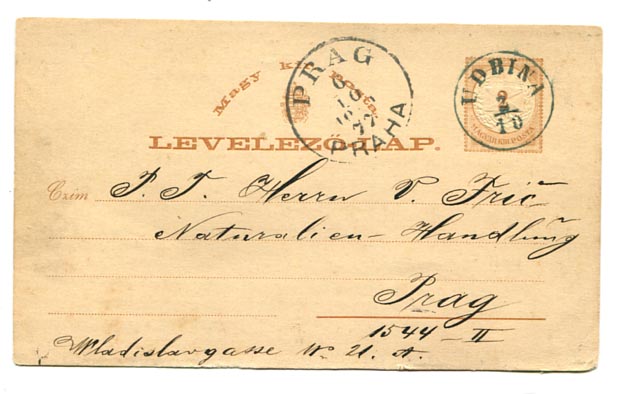 Magy. kir. Posta
LEVELEZŐ-LAP.
PRAG
6
10
77
PRAHA
UDBINA
2
10
MAGYAR KIR. POSTA
Czim
P. T. Herrn V. Frič
Naturalien-Handlung
Prag
1544-II
Wladislavgasse No 21. A.